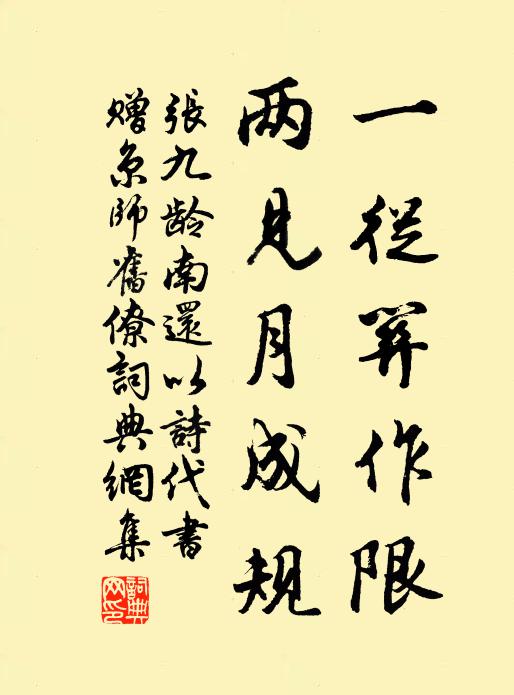 一從關作限
两見月成規
張九齡南還以詩代書
贈京師舊僚詞典網集
詞典
网印